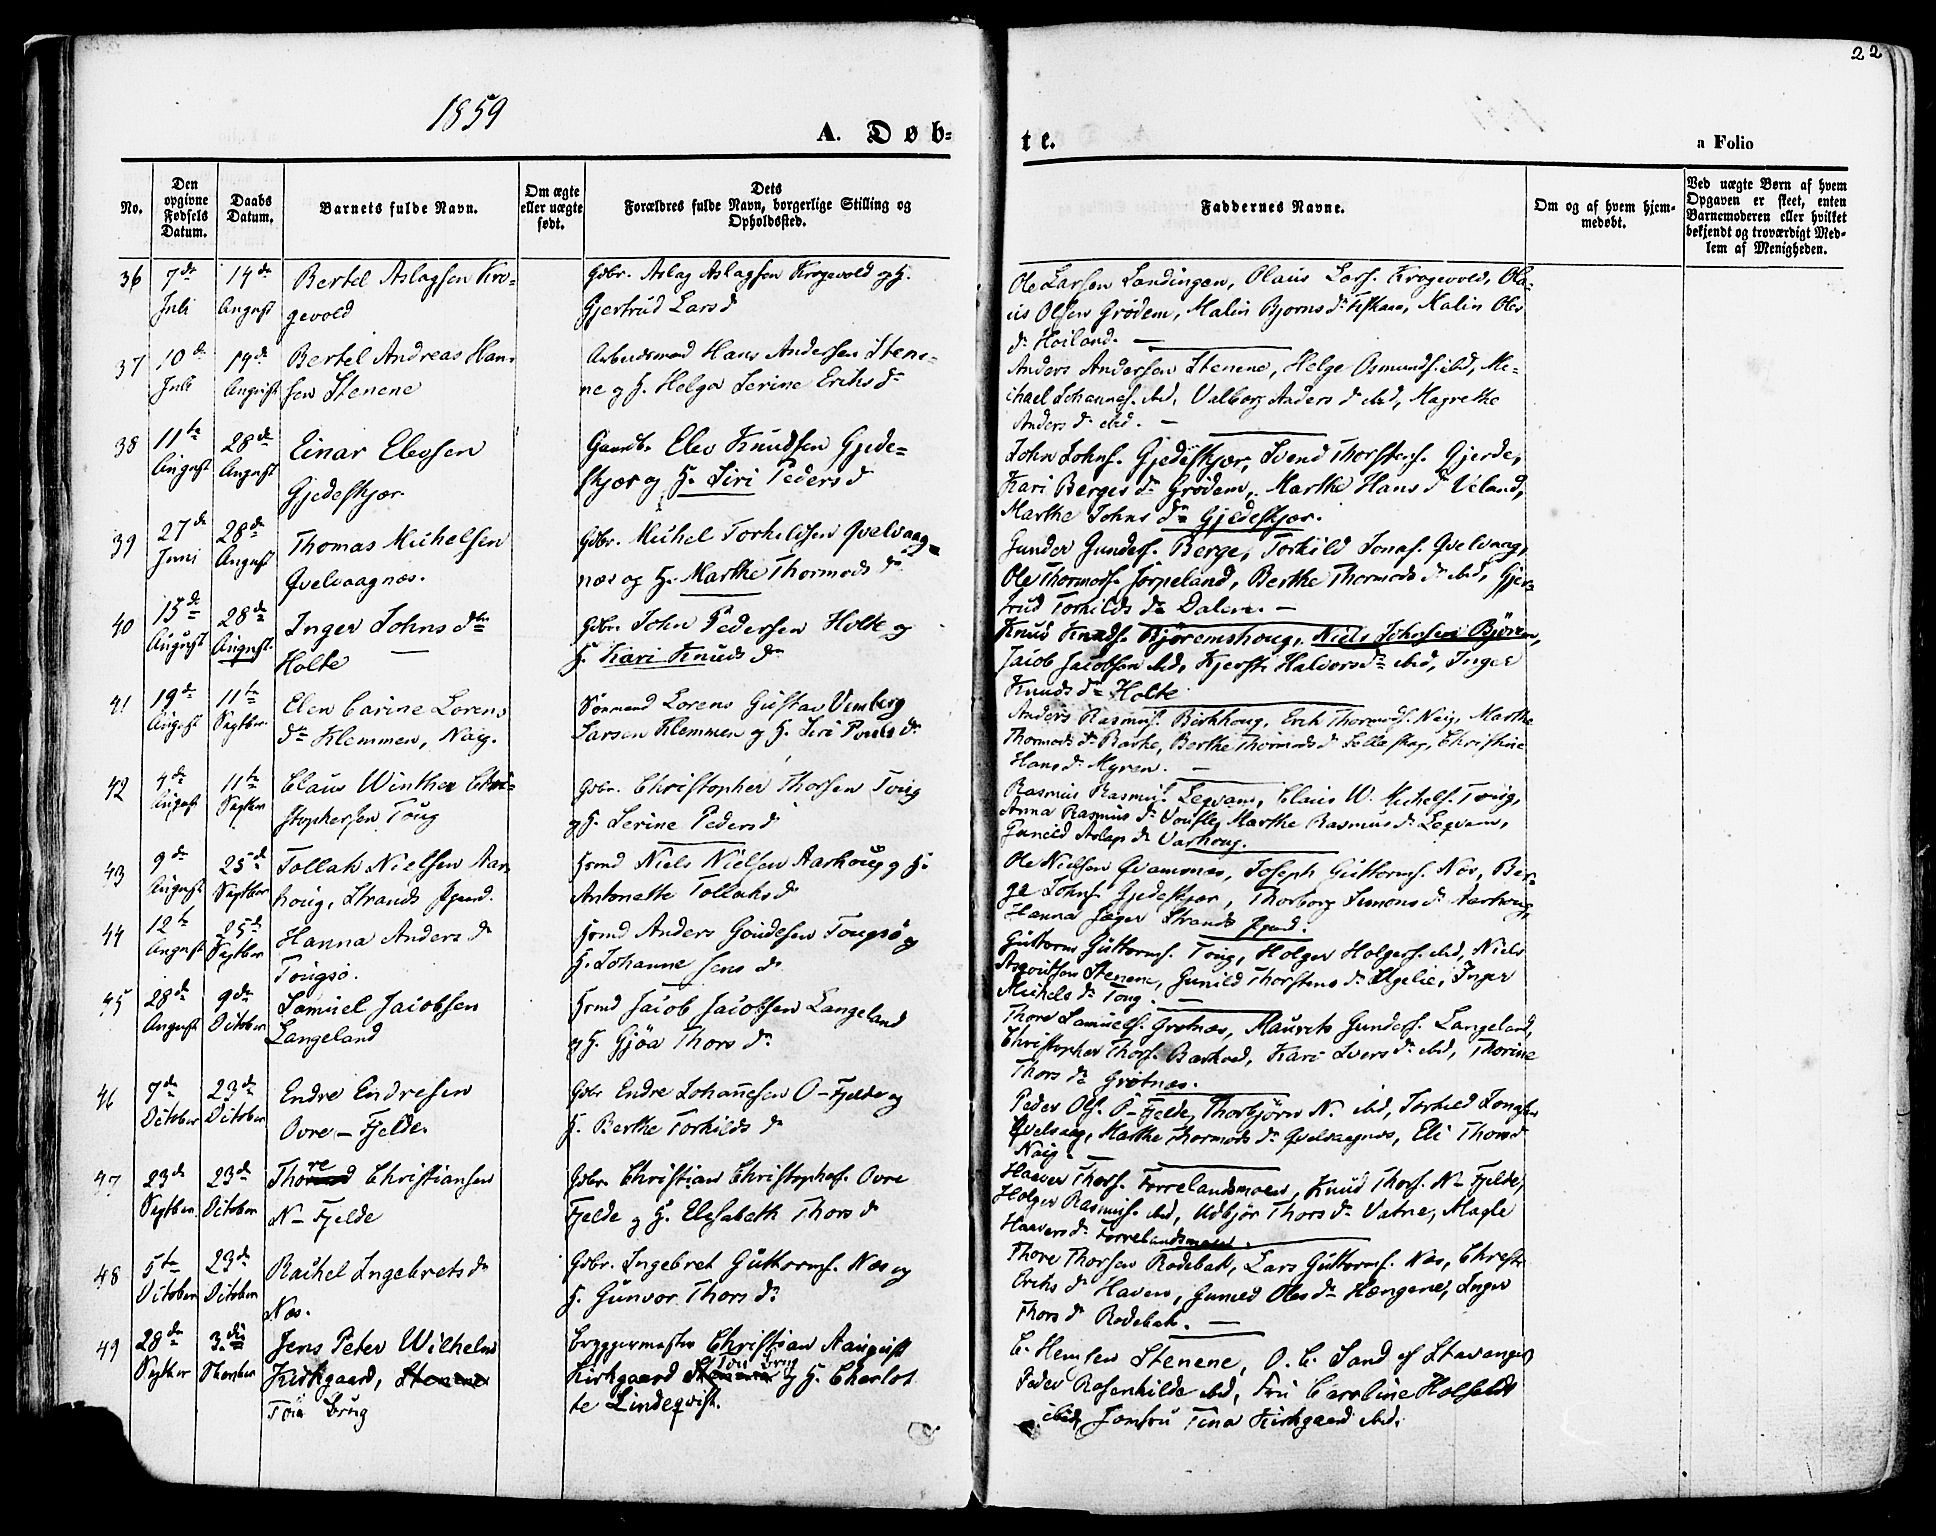 22
1859
A. Døb-
te.
a Folio
No.
Den opgivne Fødsels Datum.
Daabs Datum.
Barnets fulde Navn.
Om ægte eller uægte født.
Dets Forældres fulde Navn, borgerlige Stilling og Opholdssted.
Faddernes Navne.
Om og af hvem hjemmedøbt.
Ved uægte Børn af hvem Opgaven er skeet, enten Barnemoderen eller hvilket bekjendt og troværdigt Medlem af Menigheden.
36 7de Juli 14de August
Bertel Aslagsen Kro-
gevold
Gdbr. Aslag Aslagsen Krogevold og H.
Gjertrud Larsd
Ole Larsen Landingen, Olaus Lars. Krogevold, Ola-
us Olsen Grødem, Malin Bjørns dr Fiskaae, Malin Ols
dr Høiland.
37 10de Juli 14de August
Bertel Andreas Han-
sen Stenene
Arbeidsmand Hans Andersen Stene-
ne og H. Helga Serine Eriks dr
Anders Andersen Stenene, Helge Osmunds. ibd, Mi-
chael Johannes. ibd, Valborg Anders d ibd, Magrethe
Anders dr ibd.
38 11te August 28de August
Einar Elevsen
Gjedeskjær.
Gaardb. Elev Knudsen Gjede-
skjær og H. Siri Peders d
John Johns. Gjedeskjær, Svend Thorstens. Gjerde,
Kari Berges dr Grødem, Marthe Hans d Veland,
Marthe Johns dr Gjedeskjær.
39 27de Juni 28de August
Thomas Michelsen
Qvelvaagnæs.
Gdbr. Michel Torkildsen Qvelvaag-
næs og H. Marthe Thormods dr
Gunder Gunders. Berge, Torkild Jonas. Qvelvaag,
Ole Thormods. Jørpeland, Berthe Thormods dr ibd, Gjer-
trud Torkilds dr Dalen.
40 15de August 28de August
Inger Johns dtr
Holte
Gdbr. John Pedersen Holte og
H. Kari Knuds dr
Knud Knuds. Bjøremshoug, Niels Johnsen Bjøren,
Jacob Jacobsen ibd, Kjersti Halvors dr ibd, Inger
Knuds dr Holte
41 19de August 11te Septbr.
Elen Carine Lorens
dr Klemmen, Naig.
Sømand Lorens Gustav Vemberg
Larsen Klemmen og H. Siri Pouls dr
Anders Rasmus. Birkhoug, Erik Thormods. Naig, Marthe
Thormods dr Barke, Berthe Thormods d Selleskog, Christine
Hans dr Myren.
42 4de August 11te Septbr
Claus Winther Chri-
stophersen Toug
Gdbr. Christopher Thorsen Toug
og H. Serine Peders d
Rasmus Rasmus. Leqvam, Claus W. Michels. Toug,
Anna Rasmus dr Marthe Rasmus dr Leqvam,
Gunild Aslags dr Varhoug.
43 9de August 25de Septbr
Tollak Nielsen Aar-
houg, Strands Pgjeld.
Hsmd Niels Nielsen Aarhoug og H.
Antonette Tollaks d
Ole Nielsen Qvamsnes, Joseph Guttorms. Næs, Ber-
ge Johns. Gjedeskjær, Thorborg Simons dr Aarhoug,
Hanna Jæger Strands Pgjeld.
44 12te August 25de Septbr
Hanna Anders d
Tougsø.
Hsmd Anders Goudesen Tougsø og
H. Johanne Jens d
Guttorm Guttorms. Toug, Holger Holgers. ibd, Niels
Stenene, Gunild Thorstens dr Ugelie, Inger
Michels dr Toug.
45 28de August 9de October
Samuel Jacobsen
Langeland
Hsmd Jacob Jacobsen Langeland
og H. Gjøa Thors dr
Thore Samuels. Grøtnæs, Maurits Gunders. Langeland,
Christopher Thors. Barkved, Kari Ivers dr ibd, Thorine
Thors dr Grøtnæs.
46 7de October 23de October
Endre Endresen
Ovre-Fjelde.
Gdbr Endre Johannesen O-Fjelde og
H. Berthe Torkilds dr
Peder Ols. O-Fjelde, Thorbjørn N. ibd, Torkild
Qvelvaag, Marthe Thormods dr Qvelvaagnæs, Eli Thors d
Naig.
47 23de Septber 23de October
Thore Christiansen
N-Fjelde
Gdbr. Christian Christophers. Ovre
Fjelde og H. Elisabeth Thors d
Haaver Thors. Forrelandsmoen, Knud Thors. N-Fjelde,
Holger Rasmus. ibd, Udbjør Thors dr Vatne, Magle
Haavers dr Forrelandsmoen.
48 5te October 23de October
Rachel Ingebrets dr
Næs.
Gdbr. Ingebret Guttorms. Næs og
H. Gunvor Thors dr.
Thore Thorsen Rødebak, Lars Guttorms. Næs, Christi
Eriks dr Haven, Gunild Ols dr Hængene, Inger
Thors dr Rødebak.
49 28de Septber 3die
Jens Peter Wilhelm
Kirkgaard, Stenene
Tou Brug
Bryggermester Christian August
Kirkgaard Tou Brug og H. Charlot-
te Lindeqvist.
C. Hemsen Stenene, O. C. Sand af Stavanger
Peder Rosenkilde ibd, Fru Caroline Holfeldt
ibid, Jomfru Tina Kirkgaard ibd.